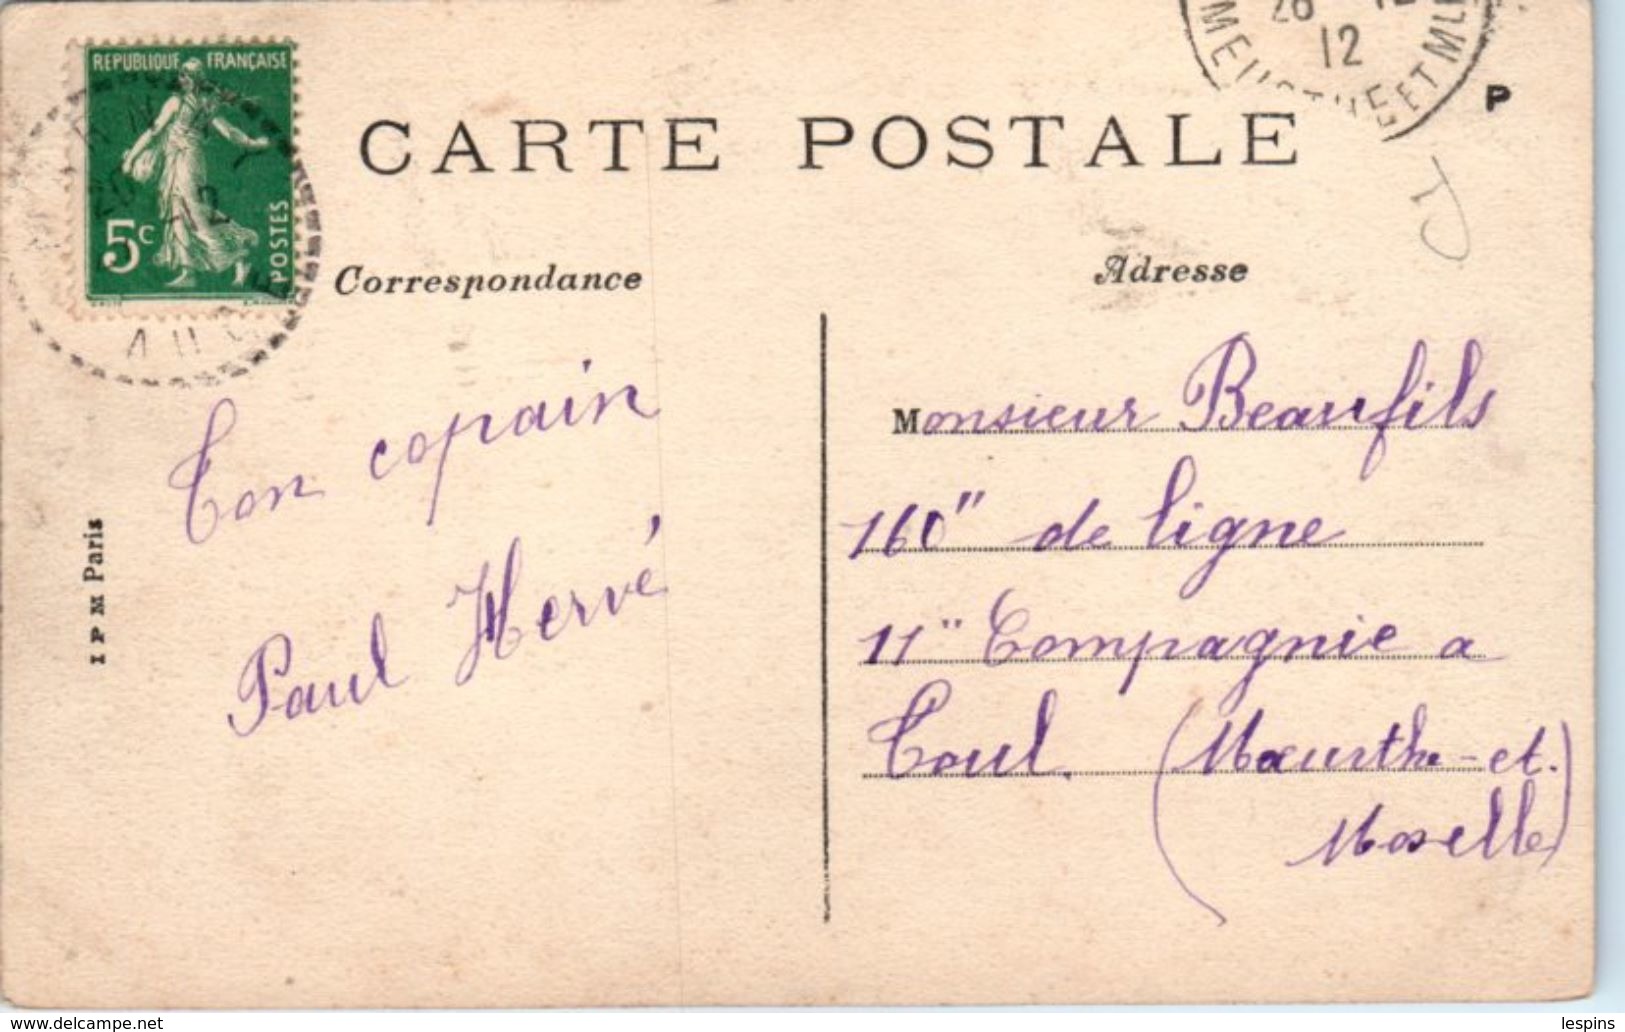 REPUBLIQUE FRANÇAISE
5c
POSTES
12
ET
AUBE
P
CARTE POSTALE
Correspondance
Adresse
Ton copain
Paul Hervé
Monsieur Beaufils
160" de ligne
11" Compagnie a
Toul. (Meurthe-et.
Moselle)
I P M Paris
www.delcampe.net
lespins